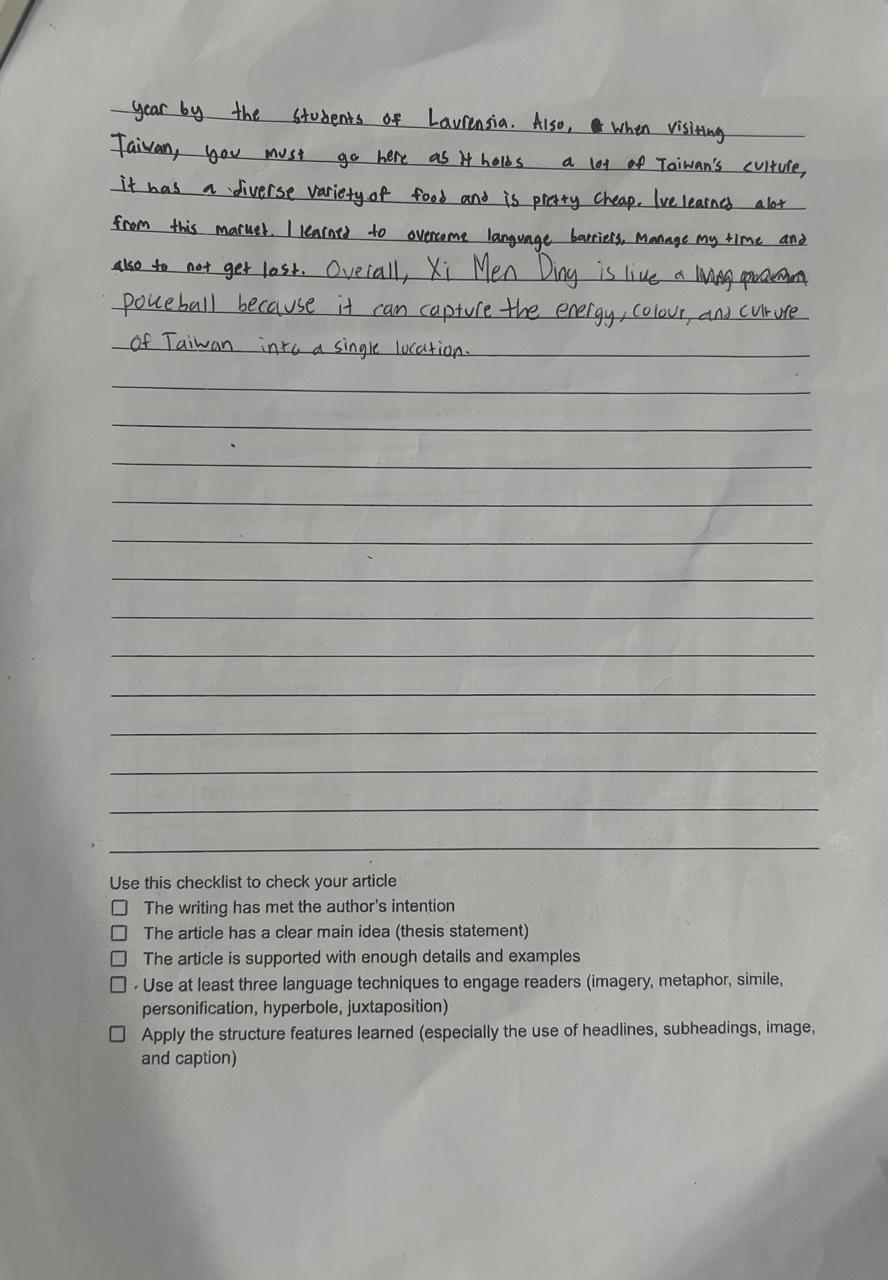 year by the students of Laurensia. Also, when visiting
Taiwan, you must go here as it holds a lot of Taiwan's culture,
it has a diverse variety of food and is pretty cheap. Ive learned alot
from this market. I learned to overcome language barriers, manage my time and
also to not get lost. Overall, Xi Men Ding is like a
pokeball because it can capture the energy, colour, and culture
of Taiwan into a single location.
Use this checklist to check your article
The writing has met the author's intention
The article has a clear main idea (thesis statement)
The article is supported with enough details and examples
Use at least three language techniques to engage readers (imagery, metaphor, simile,
personification, hyperbole, juxtaposition)
Apply the structure features learned (especially the use of headlines, subheadings, image,
and caption)